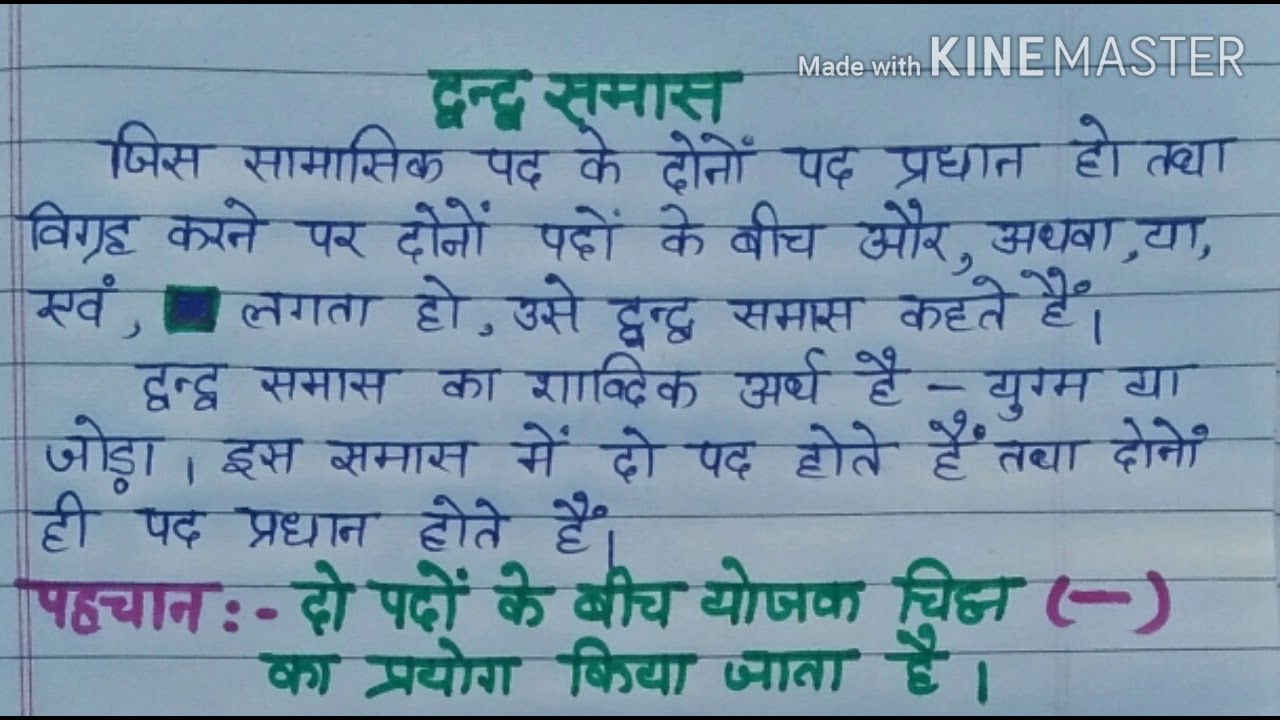 Made with KINEMASTER
द्वन्द्व समास
जिस सामासिक पद के दोनों पद प्रधान हो तथा
विग्रह करने पर दोनों पदों के बीच और, अथवा, या,
एवं, लगता हो, उसे द्वन्द्व समास कहते हैं।
द्वन्द्व समास का शाब्दिक अर्थ है - युग्म या
जोड़ा। इस समास में दो पद होते हैं तथा दोनों
ही पद प्रधान होते हैं।
पहचान :- दो पदों के बीच योजक चिह्न (-)
का प्रयोग किया जाता है।